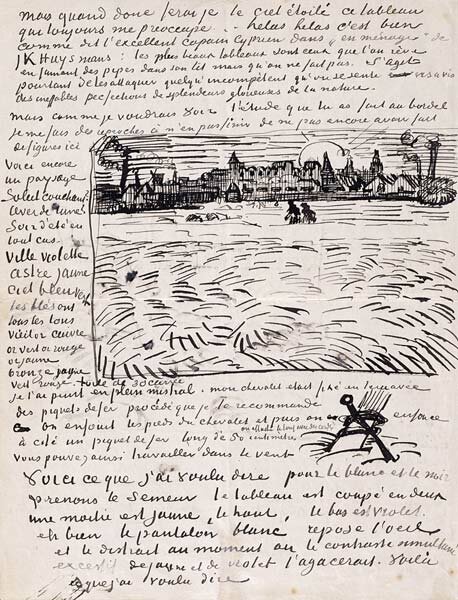 mais quand donc ferai je le ciel étoilé ce tableau
qui toujours me preoccupe . helas helas c'est bien
comme dit l'excellent copain Cyprien dans "en ménage" de
J K Huysmans : les plus beaux tableaux sont ceux que l'on rêve
en fumant des pipes dans son lit mais qu'on ne fait pas. S'agit
pourtant de les attaquer quelqu'incompétent qu'on se sente vis à vis
des ineffables perfections de splendeurs glorieuses de la nature.
Mais comme je voudrais voir l'étude que tu as fait au bordel
Je me fais des reproches à n'en pas finir de ne pas encore avoir fait
de figures ici
Voici encore
un paysage
Soleil couchant?
lever de lune?
Soir d'été en
tout cas.
Ville violette
astre jaune
ciel bleu vert
les blés ont
tous les tons
vieil or cuivre
or vert or rouge
or jaune
bronze jaune
vert rouge. toile de 30 carrée
je l'ai peint en plein mistral. mon chevalet était fixé en terre avec
des piquets de fer procédé que je te recommande
on enfouit les pieds du chevalet et puis on enfonce
à côté un piquet de fer long de 50 centimètres
on attache le tout avec des cordes
vous pouvez ainsi travailler dans le vent
Voici ce que j'ai voulu dire pour le blanc et le noir
prenons le Semeur le tableau est coupé en deux
une moitié est jaune, le haut, le bas est violet.
eh bien le pantalon blanc repose l'oeil
et le distrait au moment où le contraste simultané
excessif de jaune et de violet l'agacerait. Voilà
ce que j'ai voulu dire